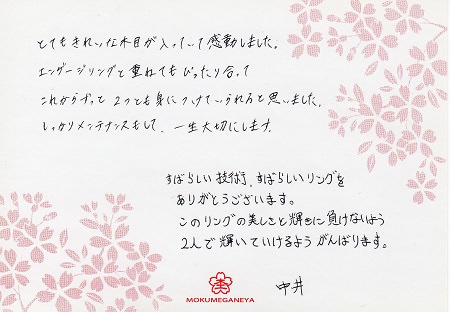 とてもきれいな木目が入っていて感動しました。
エンゲージリングと重ねてもぴったり合って
これからずっと2つとも身につけていられると思いました。
しっかりメンテナンスもして、一生大切にします。
すばらしい技術、すばらしいリングを
ありがとうございます。
このリングの美しさと輝きに負けないよう
2人で輝いていけるよう がんばります。
中井
MOKUMEGANEYA